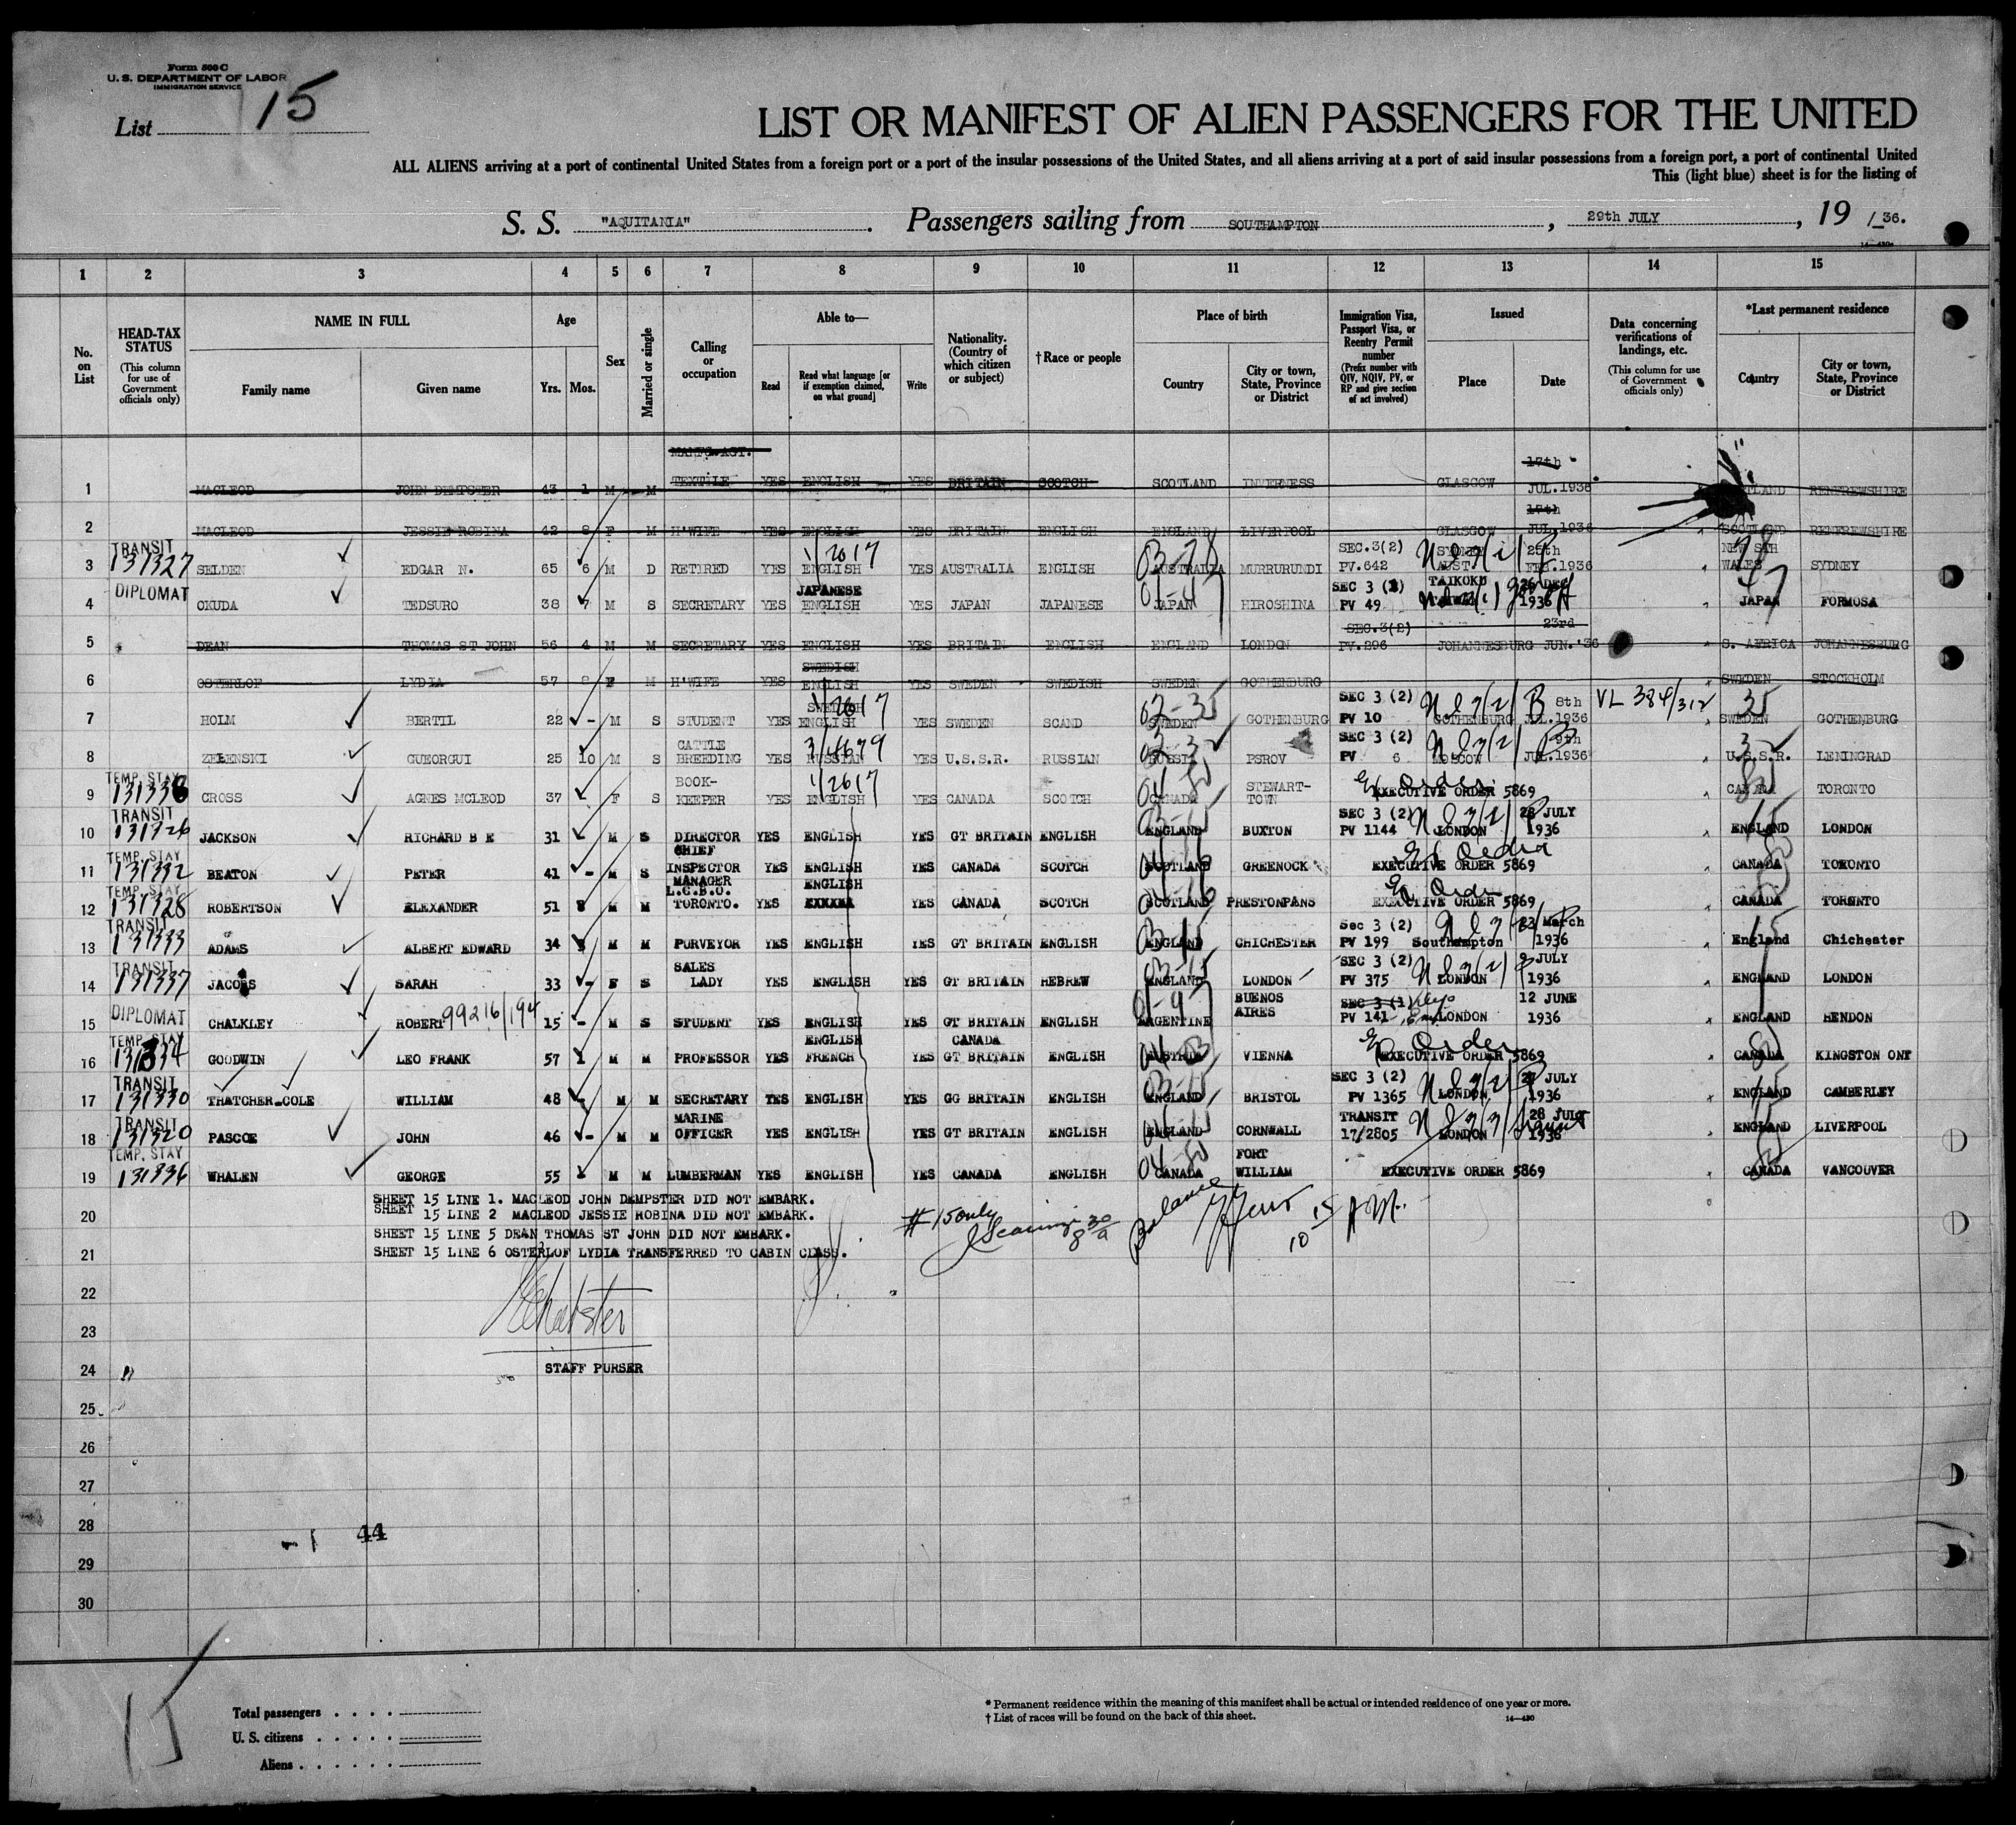 Form 500 C
U. S. DEPARTMENT OF LABOR
IMMIGRATION SERVICE
List 15
LIST OR MANIFEST OF ALIEN PASSENGERS FOR THE UNITED
ALL ALIENS arriving at a port of continental United States from a foreign port or a port of the insular possessions of the United States, and all aliens arriving at a port of said insular possessions from a foreign port, a port of continental United
This (light blue) sheet is for the listing of
S. S. "AQUITANIA". Passengers sailing from SOUTHAMPTON, 29th JULY, 19 /36.
1 2 3 4 5 6 7 8 9 10 11 12 13 14 15
No. on List
HEAD-TAX STATUS (This column for use of Government officials only)
NAME IN FULL Family name Given name
Age Yrs. Mos.
Sex
Married or single
Calling or occupation
Able to— Read Read what language [or if exemption claimed, on what ground] Write
Nationality. (Country of which citizen or subject)
† Race or people
Place of birth Country City or town, State, Province or District
Immigration Visa, Passport Visa, or Reentry Permit number (Prefix number with QIV, NQIV, PV, or RP and give section of act involved)
Issued Place Date
Data concerning verifications of landings, etc. (This column for use of Government officials only)
*Last permanent residence Country City or town, State, Province or District
1 MACLEOD JOHN DEMPSTER 43 1 M M MANFG. AGT. TEXTILE YES ENGLISH YES BRITAIN SCOTCH SCOTLAND INVERNESS GLASGOW 17th JUL.1936 RENFREWSHIRE
2 MACLEOD JESSIE ROBINA 42 8 F M H'WIFE YES ENGLISH YES BRITAIN ENGLISH ENGLAND LIVERPOOL GLASGOW 17th JUL.1936 SCOTLAND RENFREWSHIRE
3 TRANSIT 131327 SELDEN EDGAR N. 65 6 M D RETIRED YES ENGLISH 1/2617 YES AUSTRALIA ENGLISH AUSTRALIA MURRURUNDI SEC.3(2) PV.642 SYDNEY AUST. 25th FEB.1936 NEW STH WALES SYDNEY
4 DIPLOMAT OKUDA TEDSURO 38 7 M S SECRETARY YES JAPANESE ENGLISH YES JAPAN JAPANESE JAPAN HIROSHINA SEC 3 (1) PV 49 TAIKOKU 26 DEC 1936 JAPAN FORMOSA
5 DEAN THOMAS ST JOHN 56 4 M M SECRETARY YES ENGLISH YES BRITAIN ENGLISH ENGLAND LONDON SEC.3(2) PV.296 JOHANNESBURG 23rd JUN.'36 S. AFRICA JOHANNESBURG
6 OSTERLOF LYDIA 57 8 F M H'WIFE YES SWEDISH ENGLISH YES SWEDEN SWEDISH SWEDEN GOTHENBURG SWEDEN STOCKHOLM
7 HOLM BERTIL 22 - M S STUDENT YES SWEDISH ENGLISH 1/2617 YES SWEDEN SCAND 02-35 SWEDEN GOTHENBURG SEC 3 (2) PV 10 GOTHENBURG 8th JUL.1936 VL 384/312 35 SWEDEN GOTHENBURG
8 ZELENSKI GUEORGUI 25 10 M S CATTLE BREEDING YES RUSSIAN YES U.S.S.R. RUSSIAN 02-32 RUSSIA PSROV SEC 3 (2) PV 6 MOSCOW 9th JUL.1936 32 U.S.S.R. LENINGRAD
9 TEMP. STAY CROSS AGNES MCLEOD 37 - F S BOOK-KEEPER YES ENGLISH 1/2617 YES CANADA SCOTCH 04-80 CANADA STEWART-TOWN Ex Order EXECUTIVE ORDER 5869 80 CANADA TORONTO
10 TRANSIT 131326 JACKSON RICHARD B E 31 - M S DIRECTOR YES ENGLISH YES GT BRITAIN ENGLISH 03-15 ENGLAND BUXTON SEC 3 (2) PV 1144 LONDON 28 JULY 1936 15 ENGLAND LONDON
11 TEMP. STAY 131332 BEATON PETER 41 - M S CHIEF INSPECTOR YES ENGLISH YES CANADA SCOTCH 04-16 SCOTLAND GREENOCK Ex Order EXECUTIVE ORDER 5869 80 CANADA TORONTO
12 TEMP. STAY 131328 ROBERTSON ALEXANDER 51 8 M M MANAGER L.C.B.O. TORONTO. YES ENGLISH XXXXXX YES CANADA SCOTCH 04-16 SCOTLAND PRESTONPANS Ex Order EXECUTIVE ORDER 5869 CANADA TORONTO
13 TRANSIT 131333 ADAMS ALBERT EDWARD 34 M M PURVEYOR YES ENGLISH YES GT BRITAIN ENGLISH 03-15 ENGLAND CHICHESTER Sec 3 (2) PV 199 Southampton 23 March 1936 15 England Chichester
14 TRANSIT 131337 JACOBS SARAH 33 - F S SALES LADY YES ENGLISH YES GT BRITAIN HEBREW 03-15 ENGLAND LONDON SEC 3 (2) PV 375 LONDON 9 JULY 1936 ENGLAND LONDON
15 DIPLOMAT CHALKLEY ROBERT 99216/194 15 - M S STUDENT YES ENGLISH YES GT BRITAIN ENGLISH ARGENTINE BUENOS AIRES SEC 3 (1) PV 141 LONDON 12 JUNE 1936 ENGLAND HENDON
16 TEMP. STAY 131334 GOODWIN LEO FRANK 57 1 M M PROFESSOR YES ENGLISH FRENCH YES CANADA GT BRITAIN ENGLISH 04-03 AUSTRIA VIENNA Ex Order EXECUTIVE ORDER 5869 80 CANADA KINGSTON ONT
17 TRANSIT 131330 THATCHER-COLE WILLIAM 48 - M M SECRETARY YES ENGLISH YES GG BRITAIN ENGLISH 03-15 ENGLAND BRISTOL SEC 3 (2) PV 1365 LONDON 27 JULY 1936 15 ENGLAND CAMBERLEY
18 TRANSIT 131320 PASCOE JOHN 46 - M M MARINE OFFICER YES ENGLISH YES GT BRITAIN ENGLISH ENGLAND CORNWALL TRANSIT 17/2805 LONDON 28 JULY 1936 Transit ENGLAND LIVERPOOL
19 TEMP. STAY 131336 WHALEN GEORGE 55 M M LUMBERMAN YES ENGLISH YES CANADA ENGLISH 04-80 CANADA FORT WILLIAM EXECUTIVE ORDER 5869 80 CANADA VANCOUVER
SHEET 15 LINE 1. MACLEOD JOHN DEMPSTER DID NOT EMBARK.
20 SHEET 15 LINE 2 MACLEOD JESSIE ROBINA DID NOT EMBARK.
SHEET 15 LINE 5 DEAN THOMAS ST JOHN DID NOT EMBARK.
21 SHEET 15 LINE 6 OSTERLOF LYDIA TRANSFERRED TO CABIN CLASS.
# 15 only
Balance
10 15 AM.
22
23
24 STAFF PURSER
25
26
27
28 44
29
30
15
Total passengers
U. S. citizens
Aliens
* Permanent residence within the meaning of this manifest shall be actual or intended residence of one year or more.
† List of races will be found on the back of this sheet.
14—430